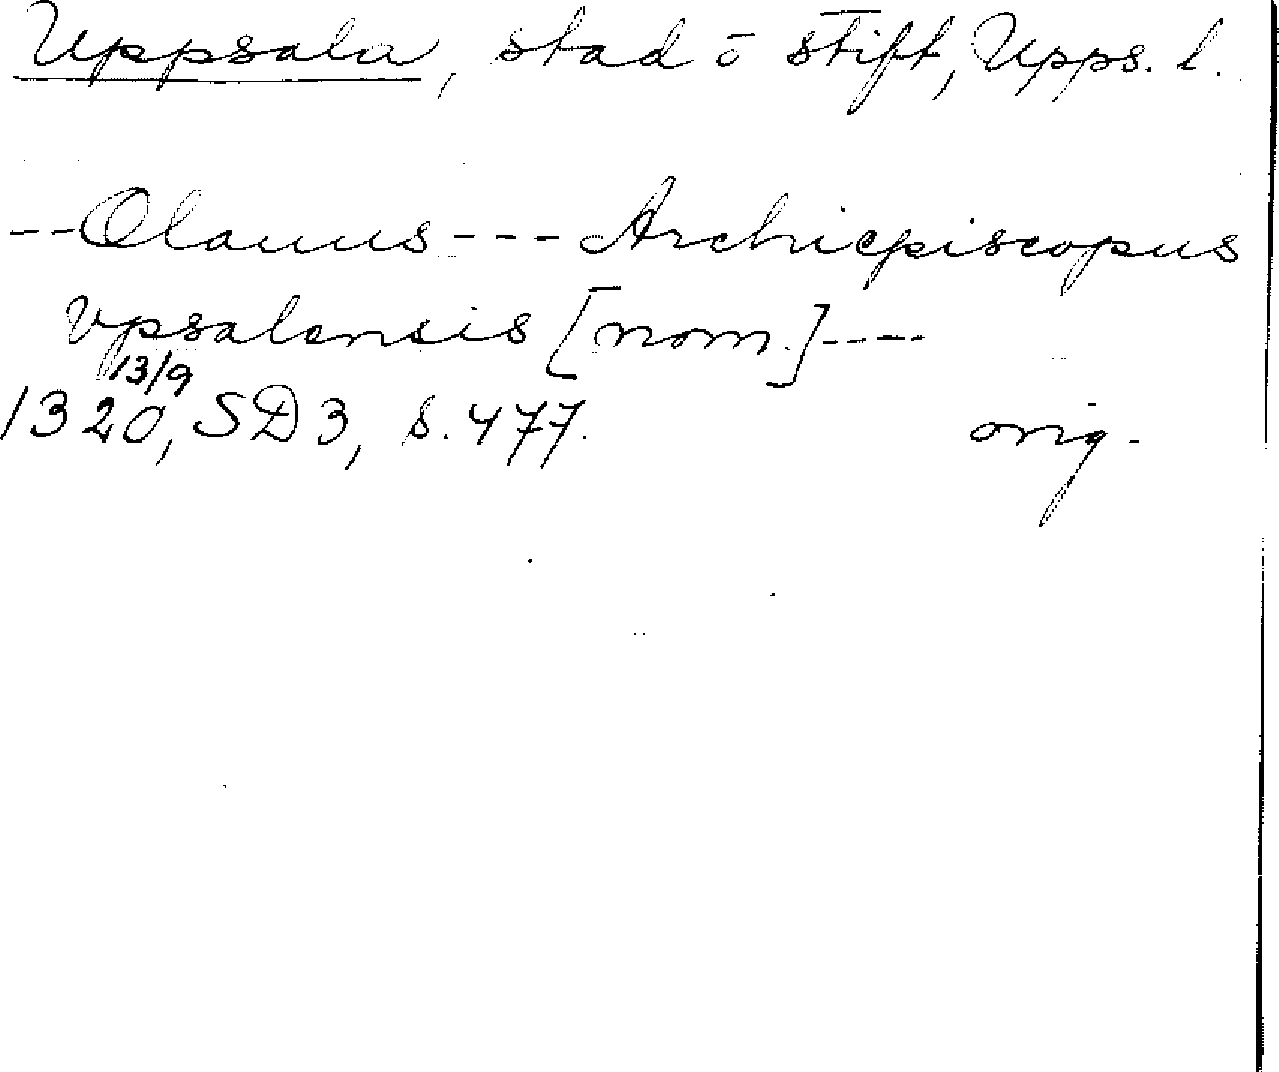 Uppsala, stad o stift, Upps. l.
--Olauus---Archiepiscopus
Vpsalensis [nom.]----
13/9
1320, SD3, s. 477. orig.